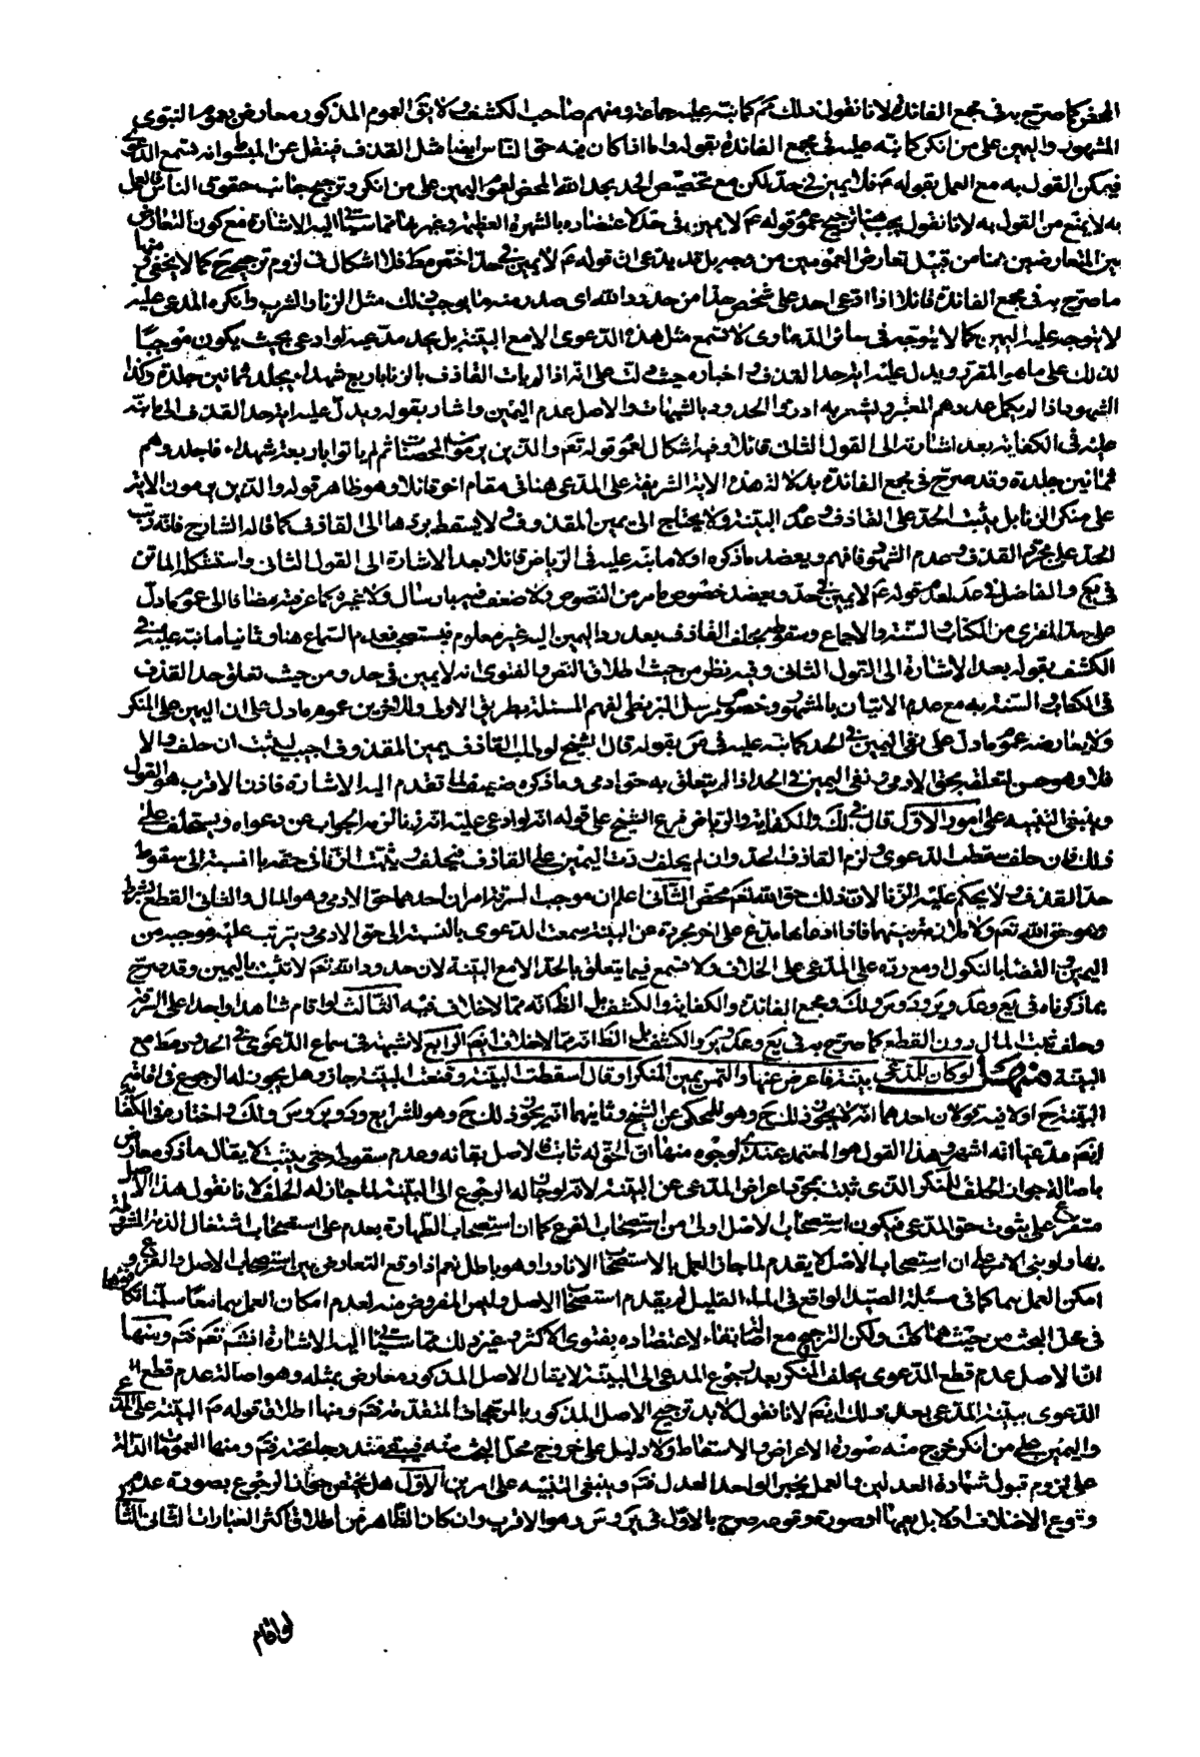 المحض كما صرح به في مجمع الفائدة لانا نقول ذلك ثم كما نبه عليه جماعة ومنهم صاحب الكشف ولا يبقى العموم المذكور معارض بعموم النبوي
المشهور واليمين على من انكر كما نبه عليه في مجمع الفائدة بقوله واما اذا كان فيه حق الناس ايضا مثل القذف فنقل عن المبسوط انه تسمع الدعوى
فيمكن القول به مع العمل بقوله ع فلا يمين في حد لكن مع تخصيص الحد بحد الله المحض لعموم اليمين على من انكر وترجيح جانب حقوق الناس فالعمل
به لا يمنع من القول به لانا نقول يجب هنا ترجيح عموم قوله ع لا يمين في حد لاعتضاده بالشهرة العظيمة وغيرها مما سيأتي اليه الاشارة مع كون التعارض
بين المتعارضين هنا من قبيل تعارض العمومين من وجه بل قد يدعى ان قوله ع لا يمين في حد اخص مط فلا اشكال في لزوم ترجيحه كما لا يخفى ومنها
ما صرح به في مجمع الفائدة قائلا اذا ادعى احد على شخص حدا من حدود الله اى صدر منه ما يوجب ذلك مثل الزنا والشرب وانكره المدعى عليه
لا يتوجه عليه اليمين كما لا يتوجه في سائر الدعاوى لا تسمع مثل هذه الدعوى الا مع البينة بل يحد مدعيه لو ادعى بحيث يكون موجبا
لذلك على ما هو المقرر ويدل عليه اية حد القذف واخباره حيث دلت على انه اذا لم يات القاذف بالزنا باربع شهداء يجلد ثمانين جلدة وكذا
الشهود اذا لم يكمل عددهم المعتبر ويشعر به ادرؤا الحدود بالشبهات والاصل عدم اليمين واشار بقوله ويدل عليه اية حد القذف الى ما نبه
عليه في الكفاية بعد اشارته الى القول الثاني قائلا وفيه اشكال لعموم قوله تعم والذين يرمون المحصنات ثم لم ياتوا باربعة شهداء فاجلدوهم
ثمانين جلدة وقد صرح في مجمع الفائدة بدلالة هذه الاية الشريفة على المدعى هنا في مقام اخر قائلا وهو ظاهر قوله والذين يرمون الاية
على منكر الزنا بل يثبت الحد على القاذف بعدم البينة ولا يحتاج الى يمين المقذوف ولا يسقط بردها الى القاذف كما قاله الشارح فانه رتب
الحد على مجرد القذف وعدم الشهود فافهم ويعضد ما ذكره اولا ما نبه عليه في الرياض قائلا بعد الاشارة الى القول الثاني واستشكله الماتن
في يع والفاضل في عد لعموم قوله ع لا يمين في حد ويعضد خصوص ما مر من النصوص ولا ضعف فيه بارسال ولا غيره كما عرفته مضافا الى عموم ما دل
على حد المفترى من الكتاب والسنة والاجماع وسقوطه بحلف القاذف بعد رد اليمين اليه غير معلوم فيستصحب فعدم السماع هنا وثانيا ما نبه عليه في
الكشف بقوله بعد الاشارة الى القول الثاني وفيه نظر من حيث اطلاق النص والفتوى انه لا يمين في حد ومن حيث تعلق حد القذف
في الكتاب والسنة به مع عدم الاتيان بالشهود وخصوص مرسل البزنطي لفهم المسئلة بطريق الاولى والاخرين عموم ما دل على ان اليمين على المنكر
ولا يعارضه عموم ما دل على نفى اليمين في الحد كما نبه عليه في س بقوله قال الشيخ لو طلب القاذف يمين المقذوف اجيب ليثبت ان حلف والا
فلا وهو حسن لتعلقه بحق الادمى ونفى اليمين في الحد اذا لم يتعلق به حق ادمى وما ذكره ضعيف لما تقدم اليه الاشارة فاذن الاقرب هو القول
وينبغى التنبيه على امور الاول قال في لك والكفاية والرياض فرع الشيخ على قوله انه لو ادعى عليه انه زنا لزمه الجواب عن دعواه ويستحلف على
ذلك فان حلف سقطت الدعوى ولزم القاذف الحد وان لم يحلف ردت اليمين على القاذف فيحلف ويثبت الزنا في حقه بالنسبة الى سقوط
حد القذف ولا يحكم عليه بالزنا لان ذلك حق الله تعم محض الثاني اعلم ان موجب السرقة امران احدهما حق الادمى وهو المال والثاني القطع بشرط
وهو حق الله تعم ولا ملازمة بينهما فاذا ادعاها مدع على اخر مجردة عن البينة سمعت الدعوى بالنسبة الى حق الادمى ويترتب عليه موجبه من
اليمين والقضا بالنكول او مع رده على المدعى على الخلاف ولا تسمع فيما يتعلق بالحد الا مع البينة لان حدود الله تعم لا تثبت باليمين وقد صرح
بما ذكرناه في يع وعد وير ود وس ولك ومجمع الفائدة والكفاية والكشف بل الظ انه مما لا خلاف فيه الثالث لو اقام شاهدا واحدا على السرقة
وحلف ثبت المال دون القطع كما صرح به في يع وعد وير والكشف بل الظ انه مما لا خلاف فيه الرابع لا شبهة في سماع الدعوى في الحدود مط مع
البينة منهل لو كان للمدعى بينة فاعرض عنها والتمس يمين المنكر او قال اسقطت البينة وقنعت باليمين جاز وهل يجوز له الرجوع في اقامة
البينة ح اولا فيه قولان احدهما انه لا يجوز ذلك ح وهو للمحكى عن الشيخ وثانيهما انه يجوز ذلك ح وهو للشرايع وعد وير وس ولك واختاره في الكفاية
ايضم مدعيا انه اشهر وهذا القول هو المعتمد عندى لوجوه منها ان الحق له ثابت والاصل بقائه وعدم سقوطه حتى يثبت لا يقال ما ذكر معارض
باصالة جواز الحلف للمنكر الذى ثبت بمجرد اعراض المدعى عن البينة لانه لو جاز له الرجوع الى البينة لما جاز له الحلف لانا نقول هذا الاصل
متفرع على ثبوت حق المدعى فيكون استصحاب الاصل اولى من استصحاب الفرع كما ان استصحاب الطهارة يقدم على استصحاب اشتغال الذمة المشروطة
بها ولو بنى الامر على ان استصحاب الاصل لا يقدم لما جاز العمل بالاستصحاب الا نادرا وهو باطل نعم اذا وقع التعارض بين استصحاب الاصل والفرع و
امكن العمل بهما كما في مسئلة الصيد الواقع في الماء القليل لم يقدم استصحاب الاصل وليس المفروض منه لعدم امكان العمل بهما معا سلمنا تكافئهما
في محل البحث من حيث هما هما ولكن الترجيح مع اصالة البقاء لاعتضاده بفتوى الاكثر وغير ذلك مما سيأتي اليه الاشارة انشم تعم فتم ومنها
ان الاصل عدم قطع الدعوى بحلف المنكر بعد رجوع المدعى الى البينة لا يقال الاصل المذكور معارض بمثله وهو اصالة عدم قطع
الدعوى ببينة المدعى بعد ذلك ايضم لانا نقول لا بد من ترجيح الاصل المذكور بالمرجحات المتقدمة فتم ومنها اطلاق قوله ع البينة على المدعى
واليمين على من انكر خرج منه صورة الاعراض بالاسقاط ولا دليل على خروج محل البحث منه فيبقى مندرجا تحته فتم ومنها العمومات الدالة
على لزوم قبول شهادة العدلين والعمل بخبر الواحد العدل فتم وينبغى التنبيه على امرين الاول هل يختص جواز الرجوع بصورة عدم
وقوع الاحلاف اولا بل يعمها وصورة وقوعه صرح بالاول في ير وس وهو الاقرب وان كان الظاهر من اطلاق اكثر العبارات الثاني الثاني
لو اقام